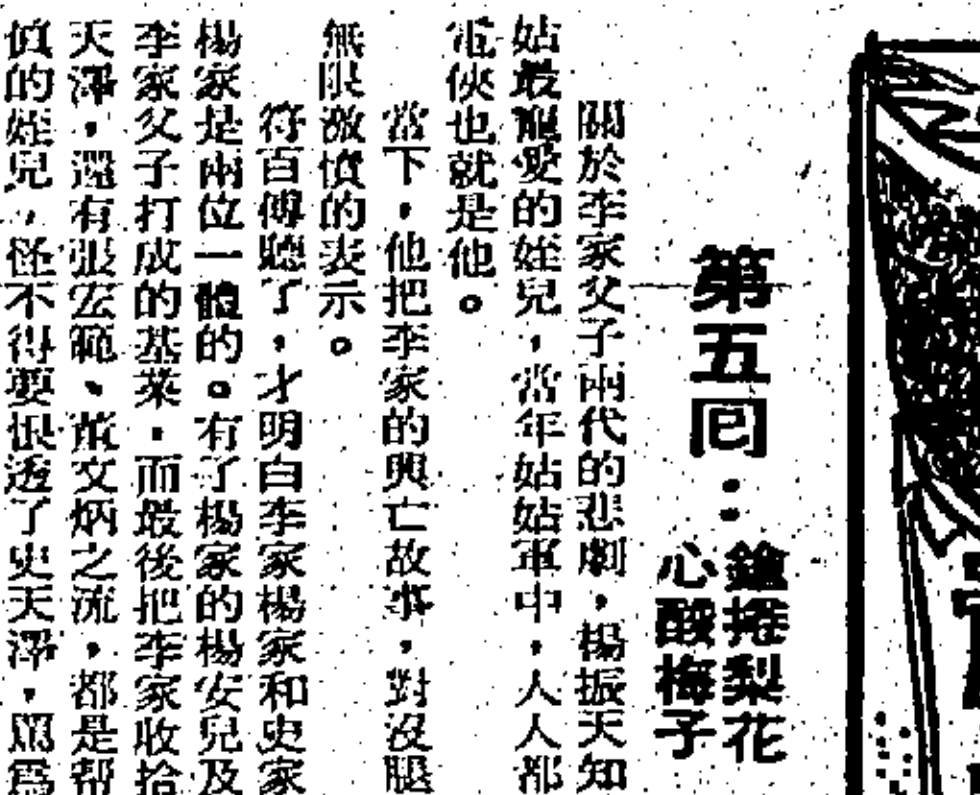 第五回：
鎗捲梨花
心酸梅子
關於李家父子兩代的悲劇，楊振天知
姑最寵愛的姪兒，當年姑姑軍中，人人都
電俠也就是他。
當下，他把李家的興亡故事，對沒腿
無限激憤的表示。
符百傅聽了，才明白李家楊家和史家
楊家是兩位一體的。有了楊家的楊安兒及
李家父子打成的基業，而最後把李家收拾
天澤，還有張宏範、董文炳之流，都是帮
值的姪兒，怪不得要恨透了史天澤，罵爲